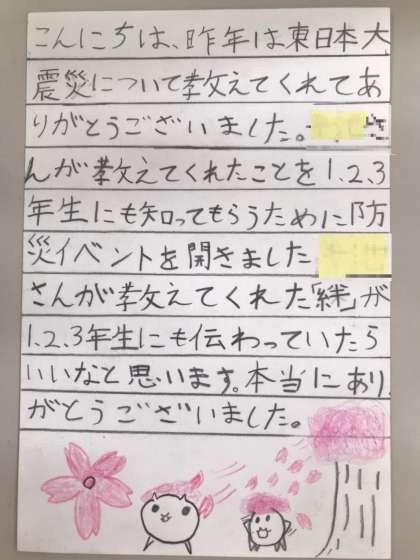 こんにちは、昨年は東日本大
震災について教えてくれてあ
りがとうございました。
んが教えてくれたことを1.2.3
年生にも知ってもらうために防
災イベントを開きました
さんが教えてくれた「絆」が
1.2.3年生にも伝わっていたら
いいなと思います。本当にあり
がとうございました。